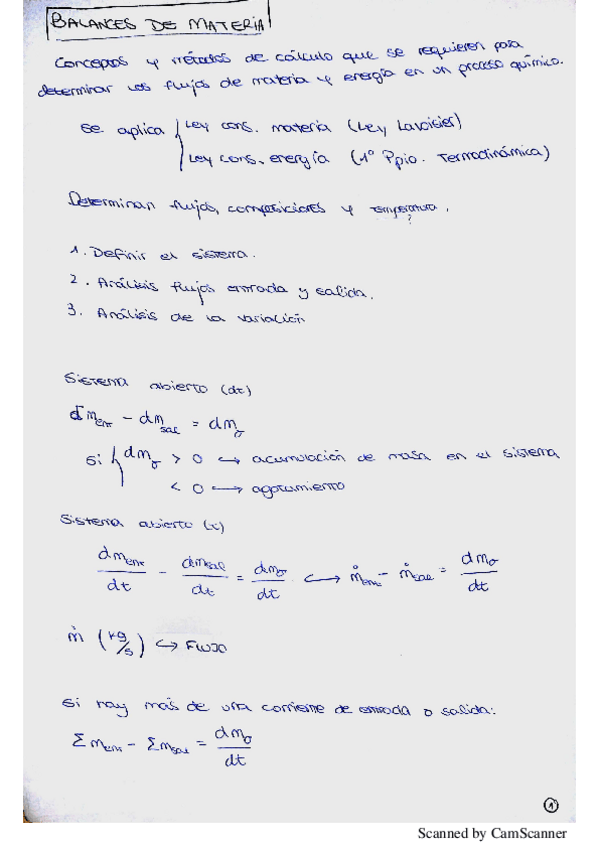 BALANCES DE MATERIA
Conceptos y métodos de cálculo que se requieren para
determinar los flujos de materia y energía en un proceso químico.
se aplica { Ley cons. materia (Ley Lavoisier)
Ley cons. energía (1º Ppio. Termodinámica)
Determinan flujos, composiciones y temperatura.
?
1. Definir el sistema.
2. Análisis flujos entrada y salida.
3. Análisis de la variación
Sistema abierto (dt)
dm_ent - dm_sal = dm_σ
si { dm_σ > 0 ↪ acumulación de masa en el sistema
< 0 ↪ agotamiento
Sistema abierto (t)
dm_ent/dt - dm_sal/dt = dm_σ/dt ↪ ṁ_ent - ṁ_sal = dm_σ/dt
ṁ (kg/s) ↪ FLUJO
si hay más de una corriente de entrada o salida:
Σ m_ent - Σ m_sal = dm_σ/dt
1
Scanned by CamScanner